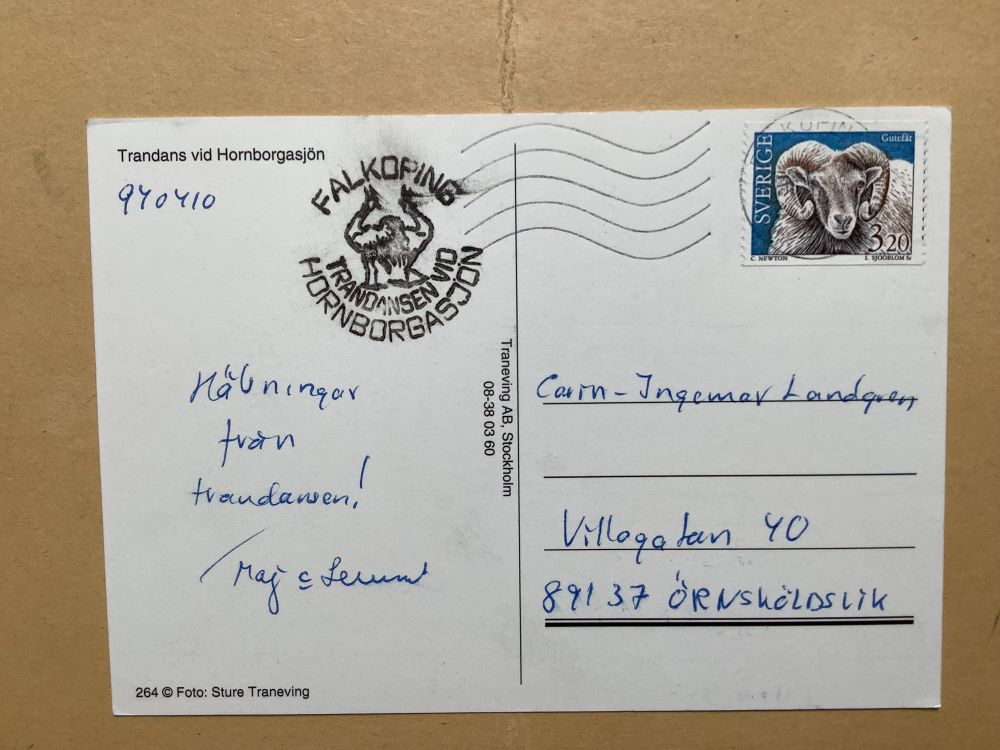 Trandans vid Hornborgasjön
940410
FALKÖPING
TRANDANSEN VID
HORNBORGASJÖN
KÖPIN
SVERIGE
Gutefår
3,20
C. NEWTON
L. SJÖÖBLOM Sc
Hälsningar
från
trandansen!
/Maj
Traneving AB, Stockholm
08-38 03 60
Carin-Ingemar Landgren
Villagatan 40
891 37 ÖRNSKÖLDSVIK
264 © Foto: Sture Traneving